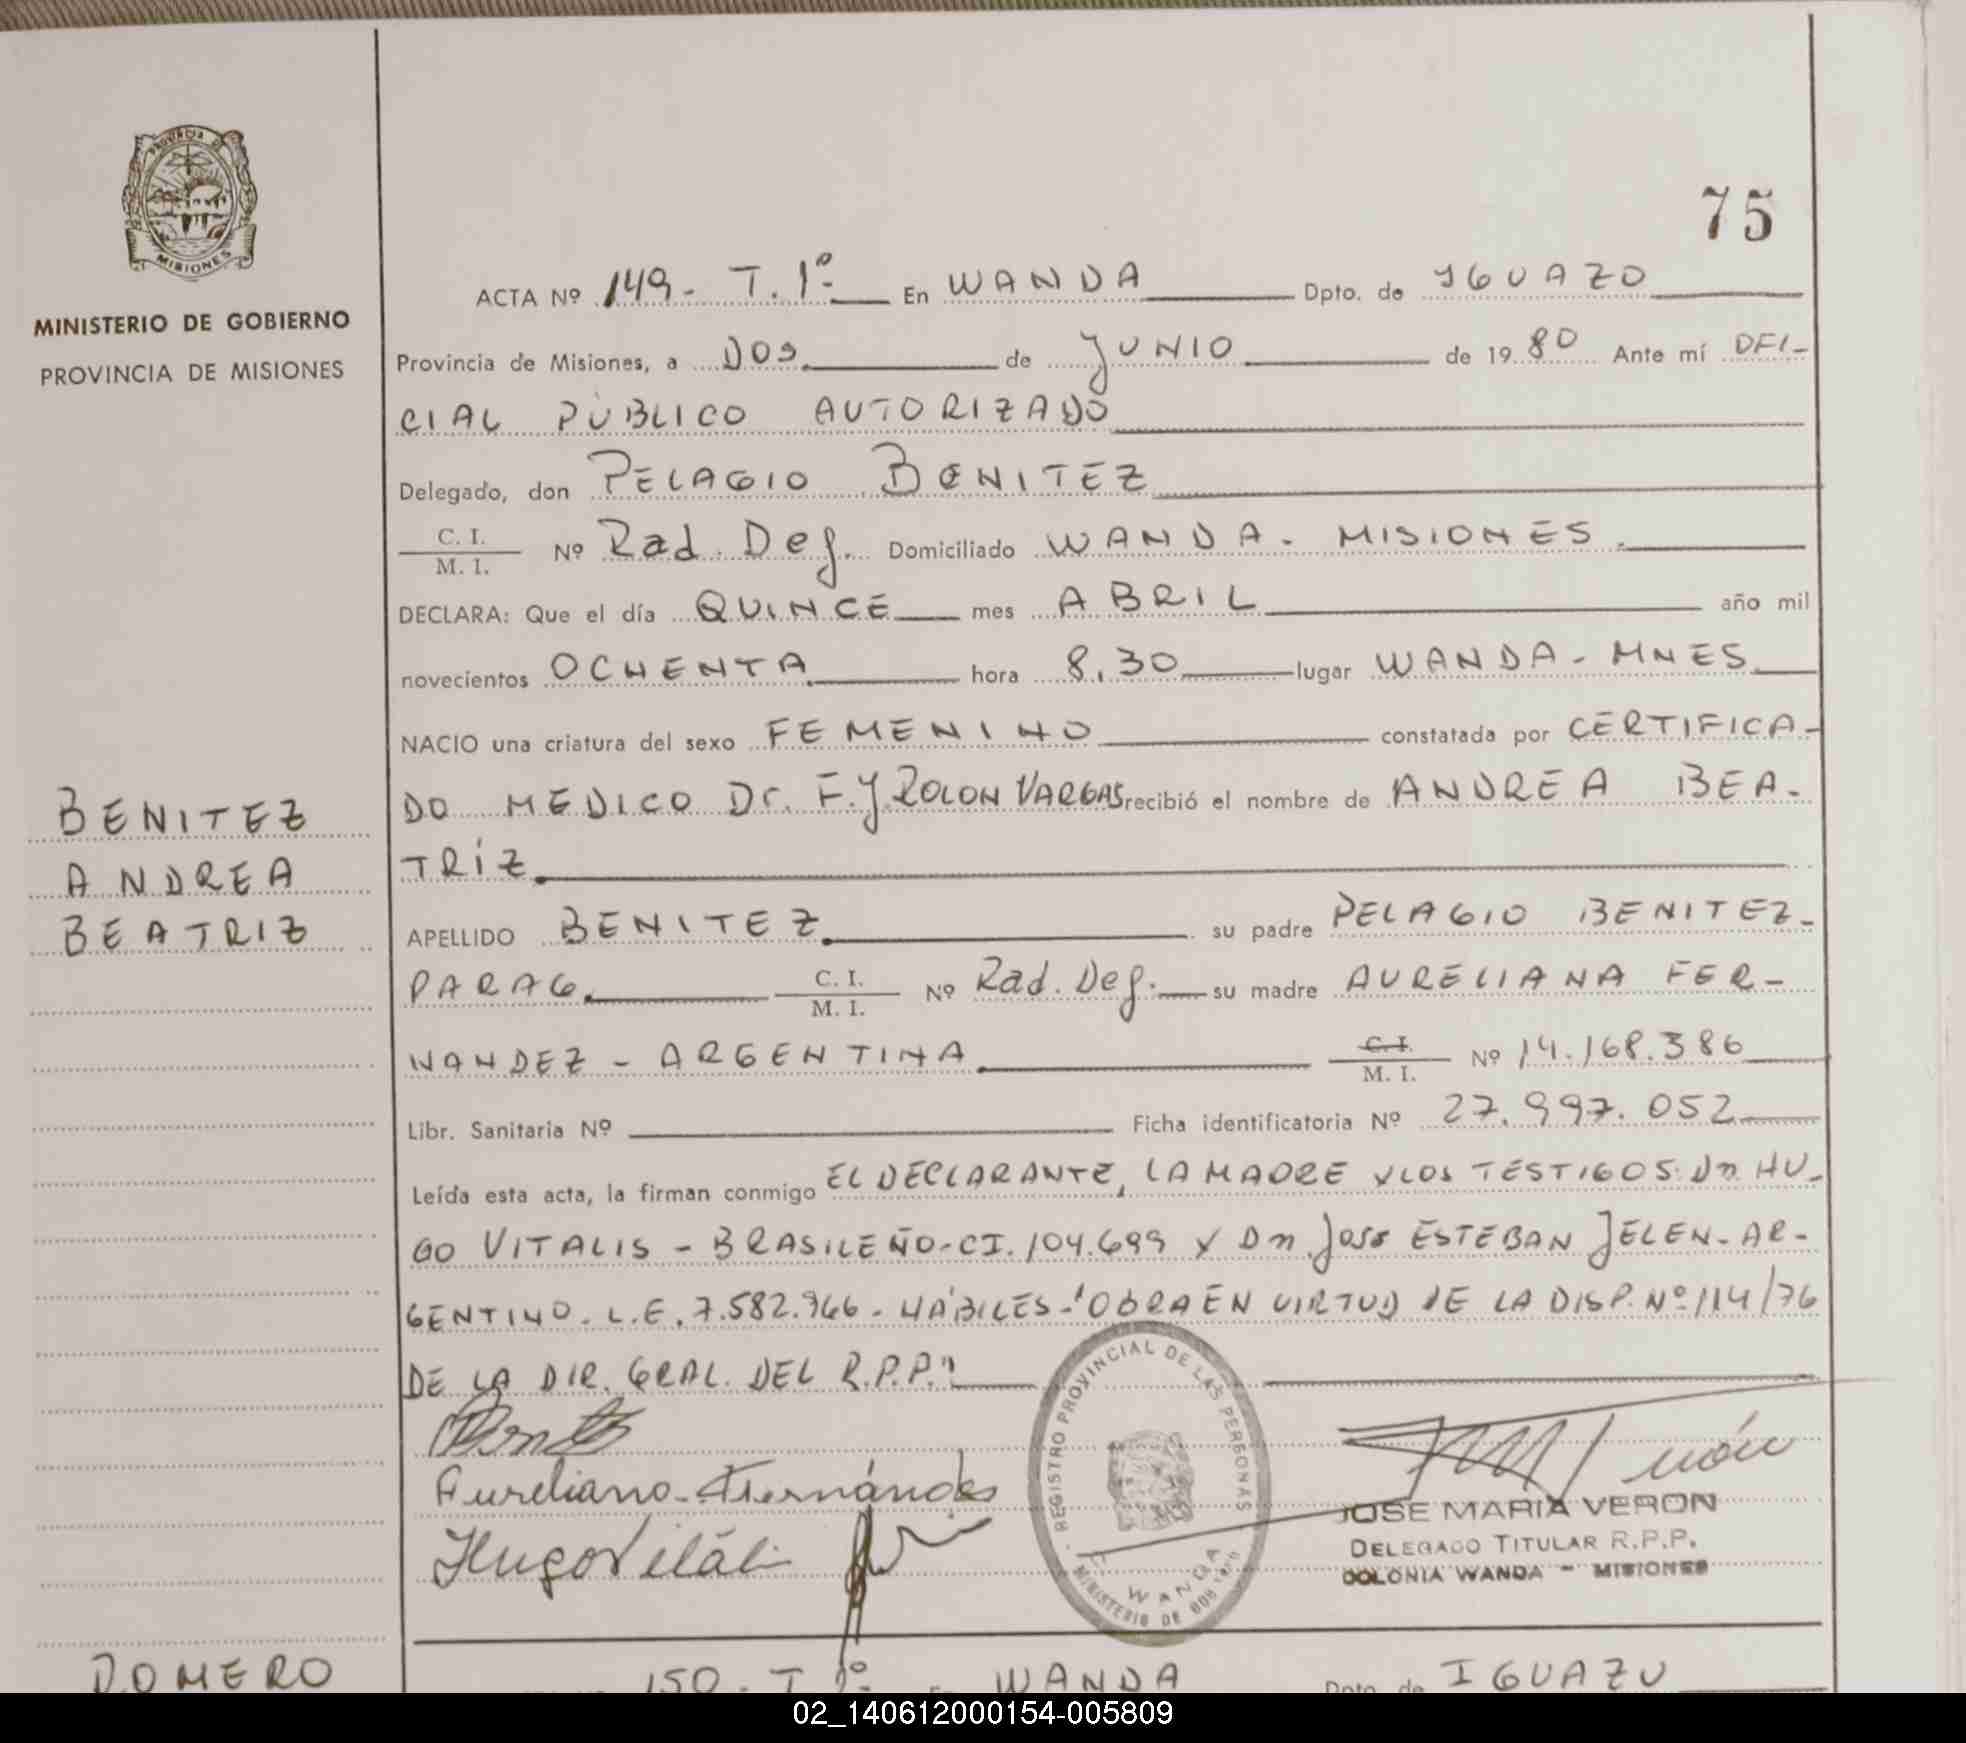 PROVINCIA DE
MISIONES
MINISTERIO DE GOBIERNO
PROVINCIA DE MISIONES
75
ACTA Nº 149- T. 1º- En WANDA Dpto. de IGUAZO
Provincia de Misiones, a DOS de JUNIO de 1980 Ante mí OFI-
CIAL PÚBLICO AUTORIZADO
Delegado, don PELAGIO BENITEZ
C. I.
M. I. Nº Rad. Def. Domiciliado WANDA - MISIONES.
DECLARA: Que el día QUINCE mes ABRIL año mil
novecientos OCHENTA hora 8,30 lugar WANDA - MNES
NACIO una criatura del sexo FEMENINO constatada por CERTIFICA-
DO MEDICO Dr. F. Y ROLON VARGAS recibió el nombre de ANDREA BEA-
TRÍZ
BENITEZ
ANDREA
BEATRIZ
APELLIDO BENITEZ su padre PELAGIO BENITEZ-
PARAG. C. I.
M. I. Nº Rad. Def. su madre AURELIANA FER-
NANDEZ - ARGENTINA C. I.
M. I. Nº 14.168.386
Libr. Sanitaria Nº Ficha identificatoria Nº 27.997.052
Leída esta acta, la firman conmigo EL DECLARANTE, LA MADRE Y LOS TESTIGOS: Dn. HU-
GO VITALIS - BRASILEÑO-CI. 104.699 Y Dn. José ESTEBAN JELEN - AR-
GENTINO. L.E. 7.582.966 - HÁBILES - "OBRA EN VIRTUD DE LA DISP. Nº 114/76
DE LA DIR. GRAL. DEL R.P.P."
Aureliana Fernández
Hugo Vitáli
REGISTRO PROVINCIAL DE LAS PERSONAS
WANDA
MINISTERIO DE GOBIERNO
JOSE MARIA VERON
DELEGADO TITULAR R.P.P.
COLONIA WANDA - MISIONES
ROMERO
150 - T. 1º- WANDA Dpto. de IGUAZU
02_140612000154-005809